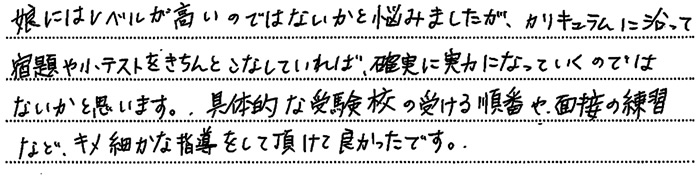 娘にはレベルが高いのではないかと悩みましたが、カリキュラムに沿って
宿題や小テストをきちんとこなしていれば、確実に実力になっていくのでは
ないかと思います。具体的な受験校の受ける順番や、面接の練習
など、キメ細かな指導をして頂けて良かったです。